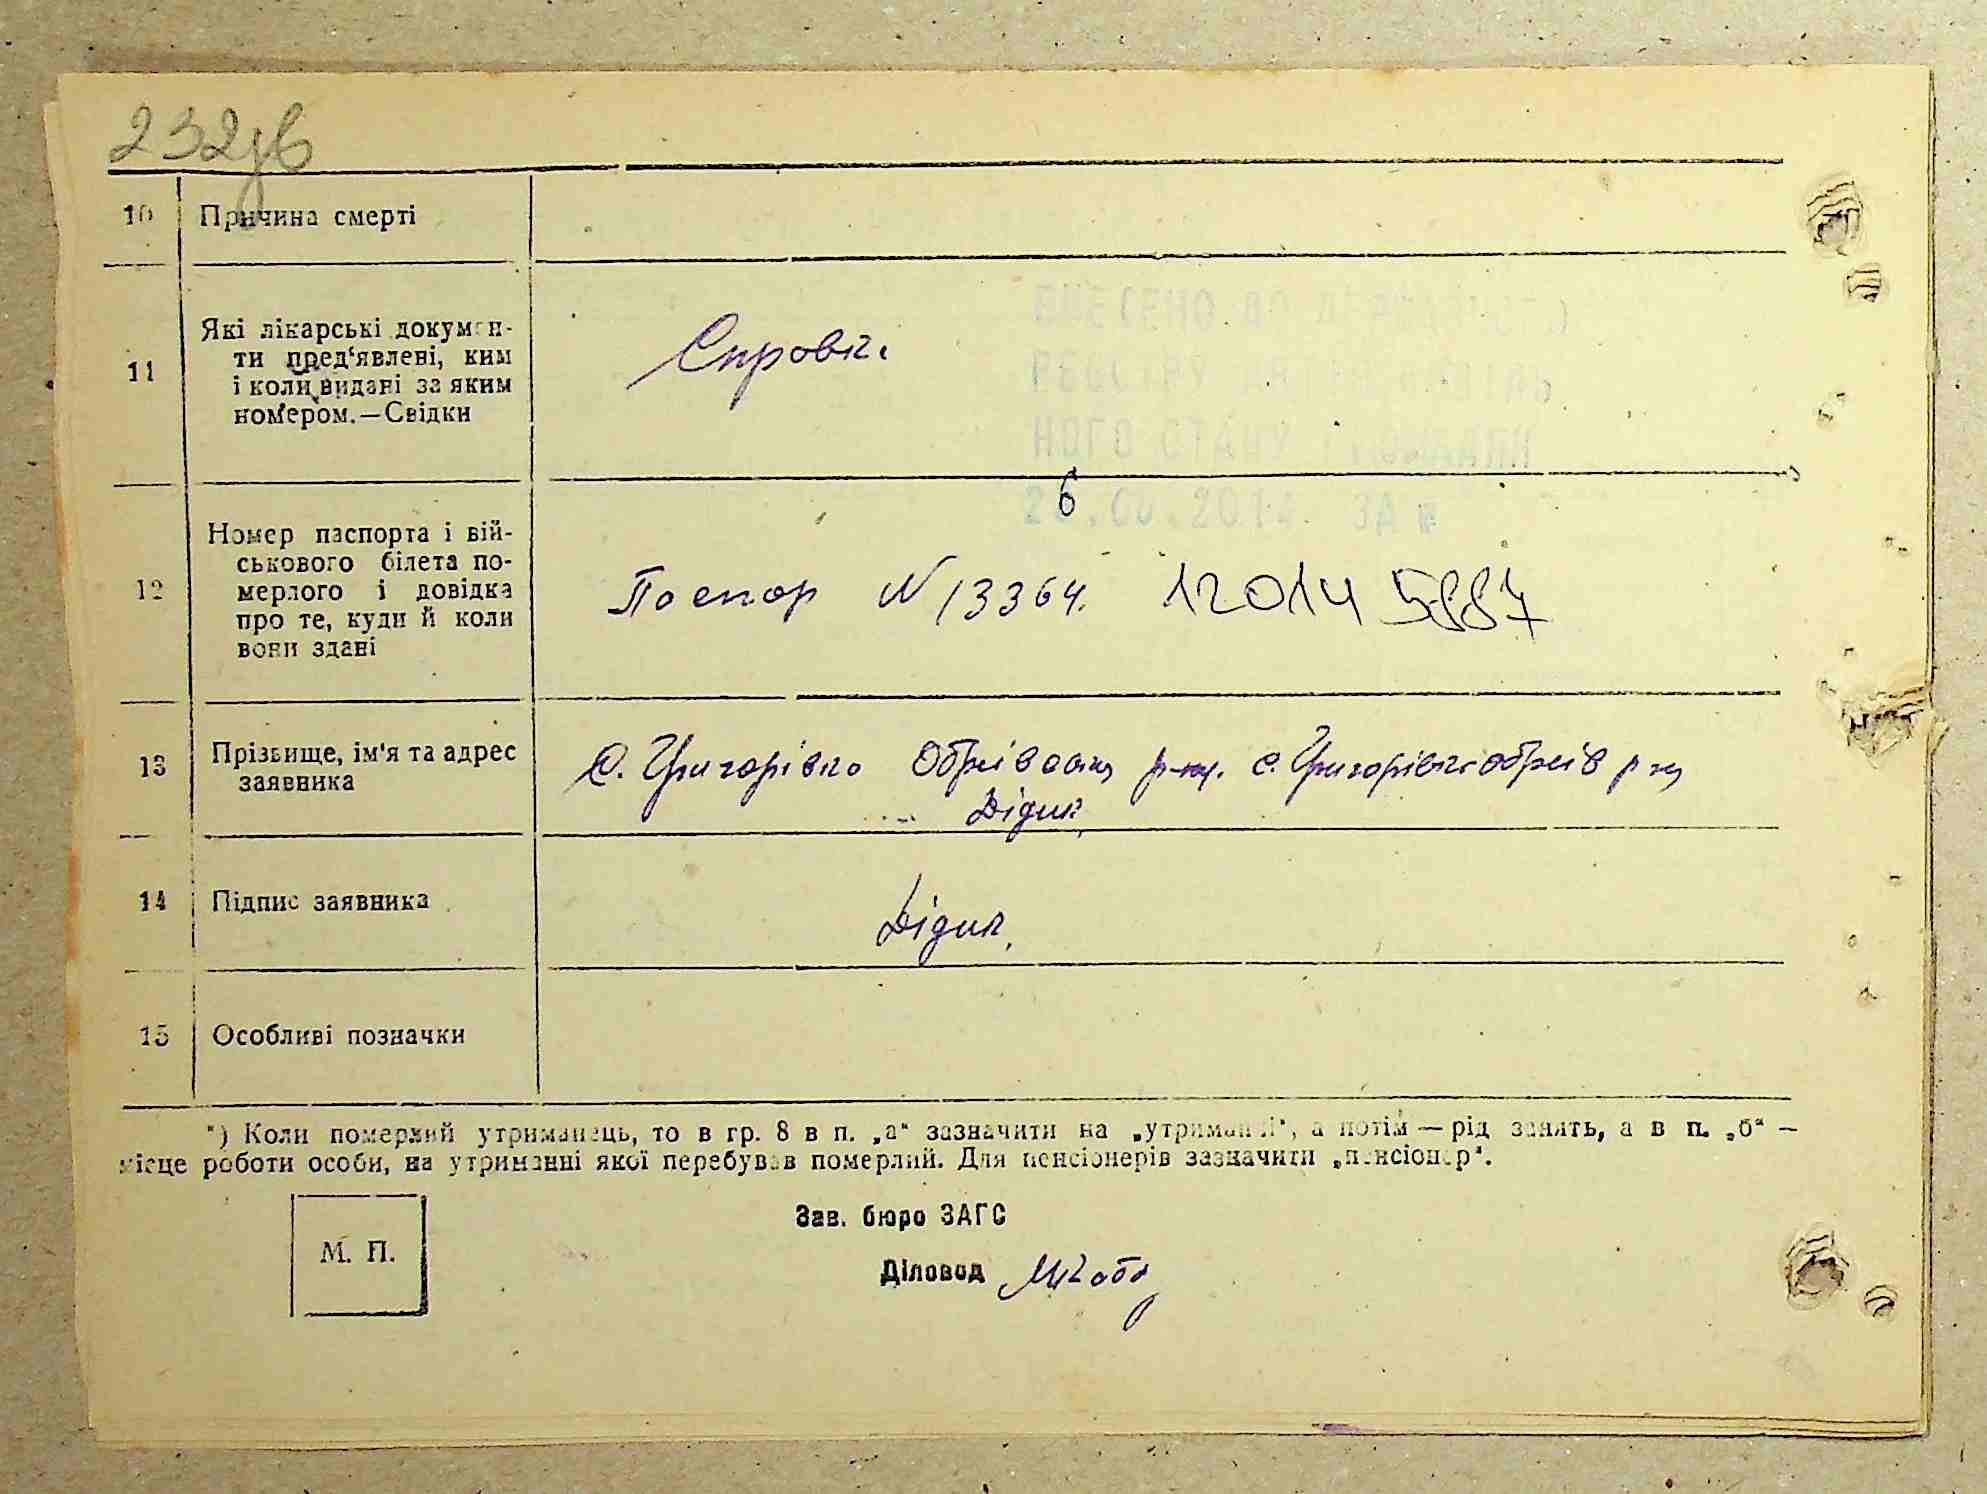 232зв
10 Причина смерті
11 Які лікарські докумен-
ти пред'явлені, ким
і коли видані за яким
номером.—Свідки
Справк.
ВНЕСЕНО ДО ДЕРЖАВНОГО
РЕЄСТРУ АКТІВ ЦИВІЛЬ
НОГО СТАНУ ГРОМАДЯН
6
2014 ЗА №
12 Номер паспорта і вій-
ськового білета по-
мерлого і довідка
про те, куди й коли
вони здані
Паспор N 13364. 12014 5887
13 Прізвище, ім'я та адрес
заявника
с. Григорівка р-ну. с. Григорівка р ну
Дідик
14 Підпис заявника
Дідик
15 Особливі позначки
*) Коли померлий утриманець, то в гр. 8 в п. „а“ зазначити на „утриманні“, а потім — рід занять, а в п. „б“ —
місце роботи особи, на утриманні якої перебував померлий. Для пенсіонерів зазначити „пенсіонер“.
М. П.
Зав. бюро ЗАГС
Діловод